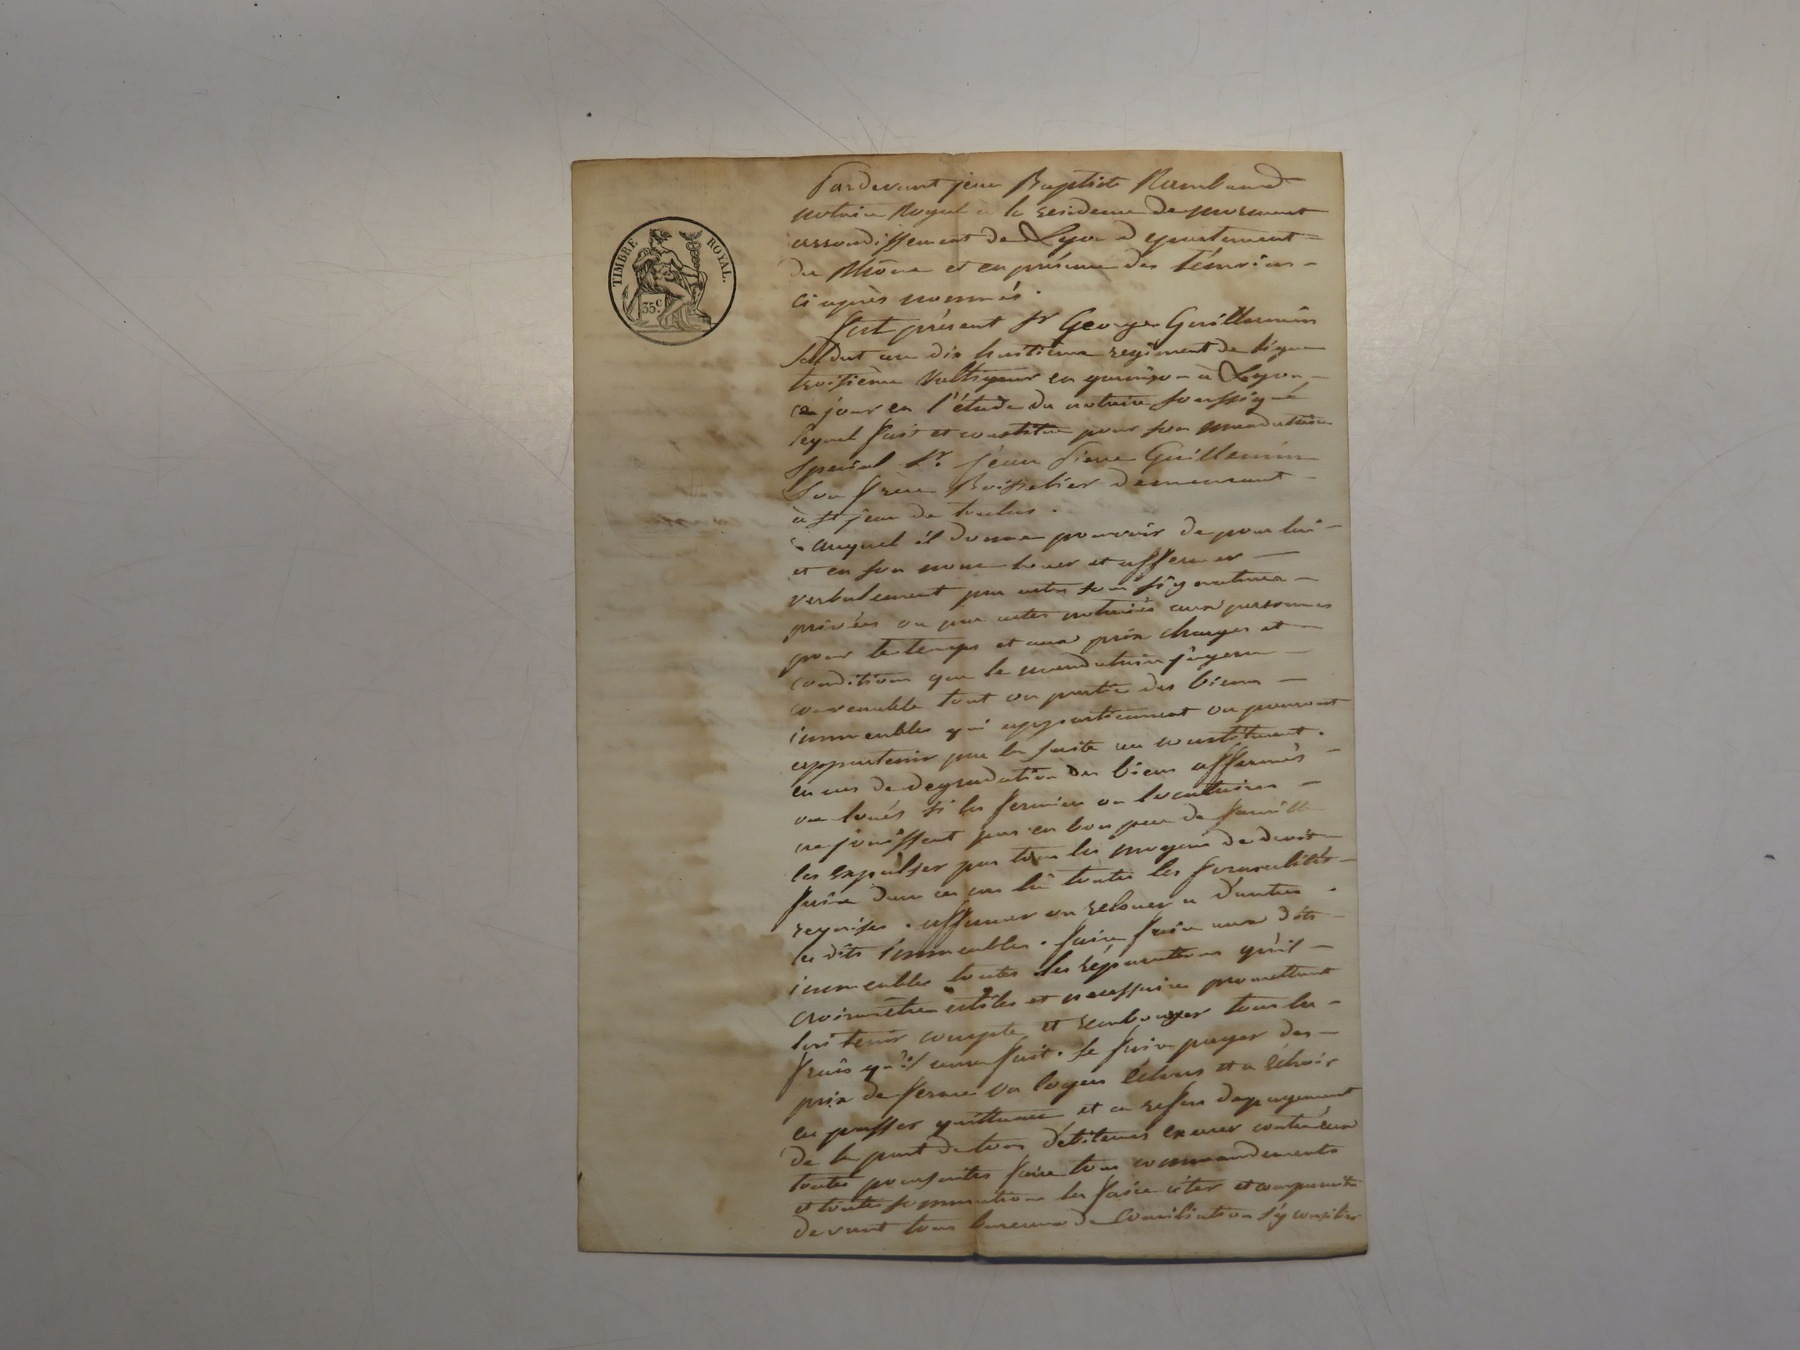 TIMBRE ROYAL.
35c
Pardevant jean Baptiste Rambaud
notaire Royal à la residence de mornant
arrondissement de Lyon departement
du Rhône et en présence des témoins
ci après nommés.
fut présent Sr George Guillermin
soldat au dix huitième regiment de ligne
troisième Voltigeur en garnison à Lyon
ce jour en l'étude du notaire soussigné
lequel fait et constitue pour son mandataire
special Sr. jean Pierre Guillermin
son frère demeurant
à St jean de toulas.
auquel il donne pouvoir de pour lui
et en son nom louer et affermer
verbalement par actes sous signatures
privées ou par actes notariés aux personnes
pour le temps et aux prix charges et
conditions que le mandataire jugera
convenable tout ou partie des biens
immeubles qui appartiennent ou pourront
appartenir par la suite au constituant.
en cas de degradation des biens affermés
ou loués si les fermiers ou locataires
ne jouissent pas en bon père de famille
les expulser par tous les moyens de droit
faire dans ce cas là toutes les formalités
requises. affermer ou relouer a d'autres
les dits immeubles. faire faire aux dits
immeubles toutes les réparations qu'il
croira être utiles et necessaires promettant
lui tenir compte et rembourser tous les
frais qu'il aura fait. se faire payer des
prix de ferme ou loyers échus et a échoir
en passer quittance et a refus de payement
de la part de tous débiteurs exercer contr'eux
toutes poursuites faire tous commandements
et toute sommations les faire citer et comparaitre
devant tous bureaux de Conciliation s'y concilier